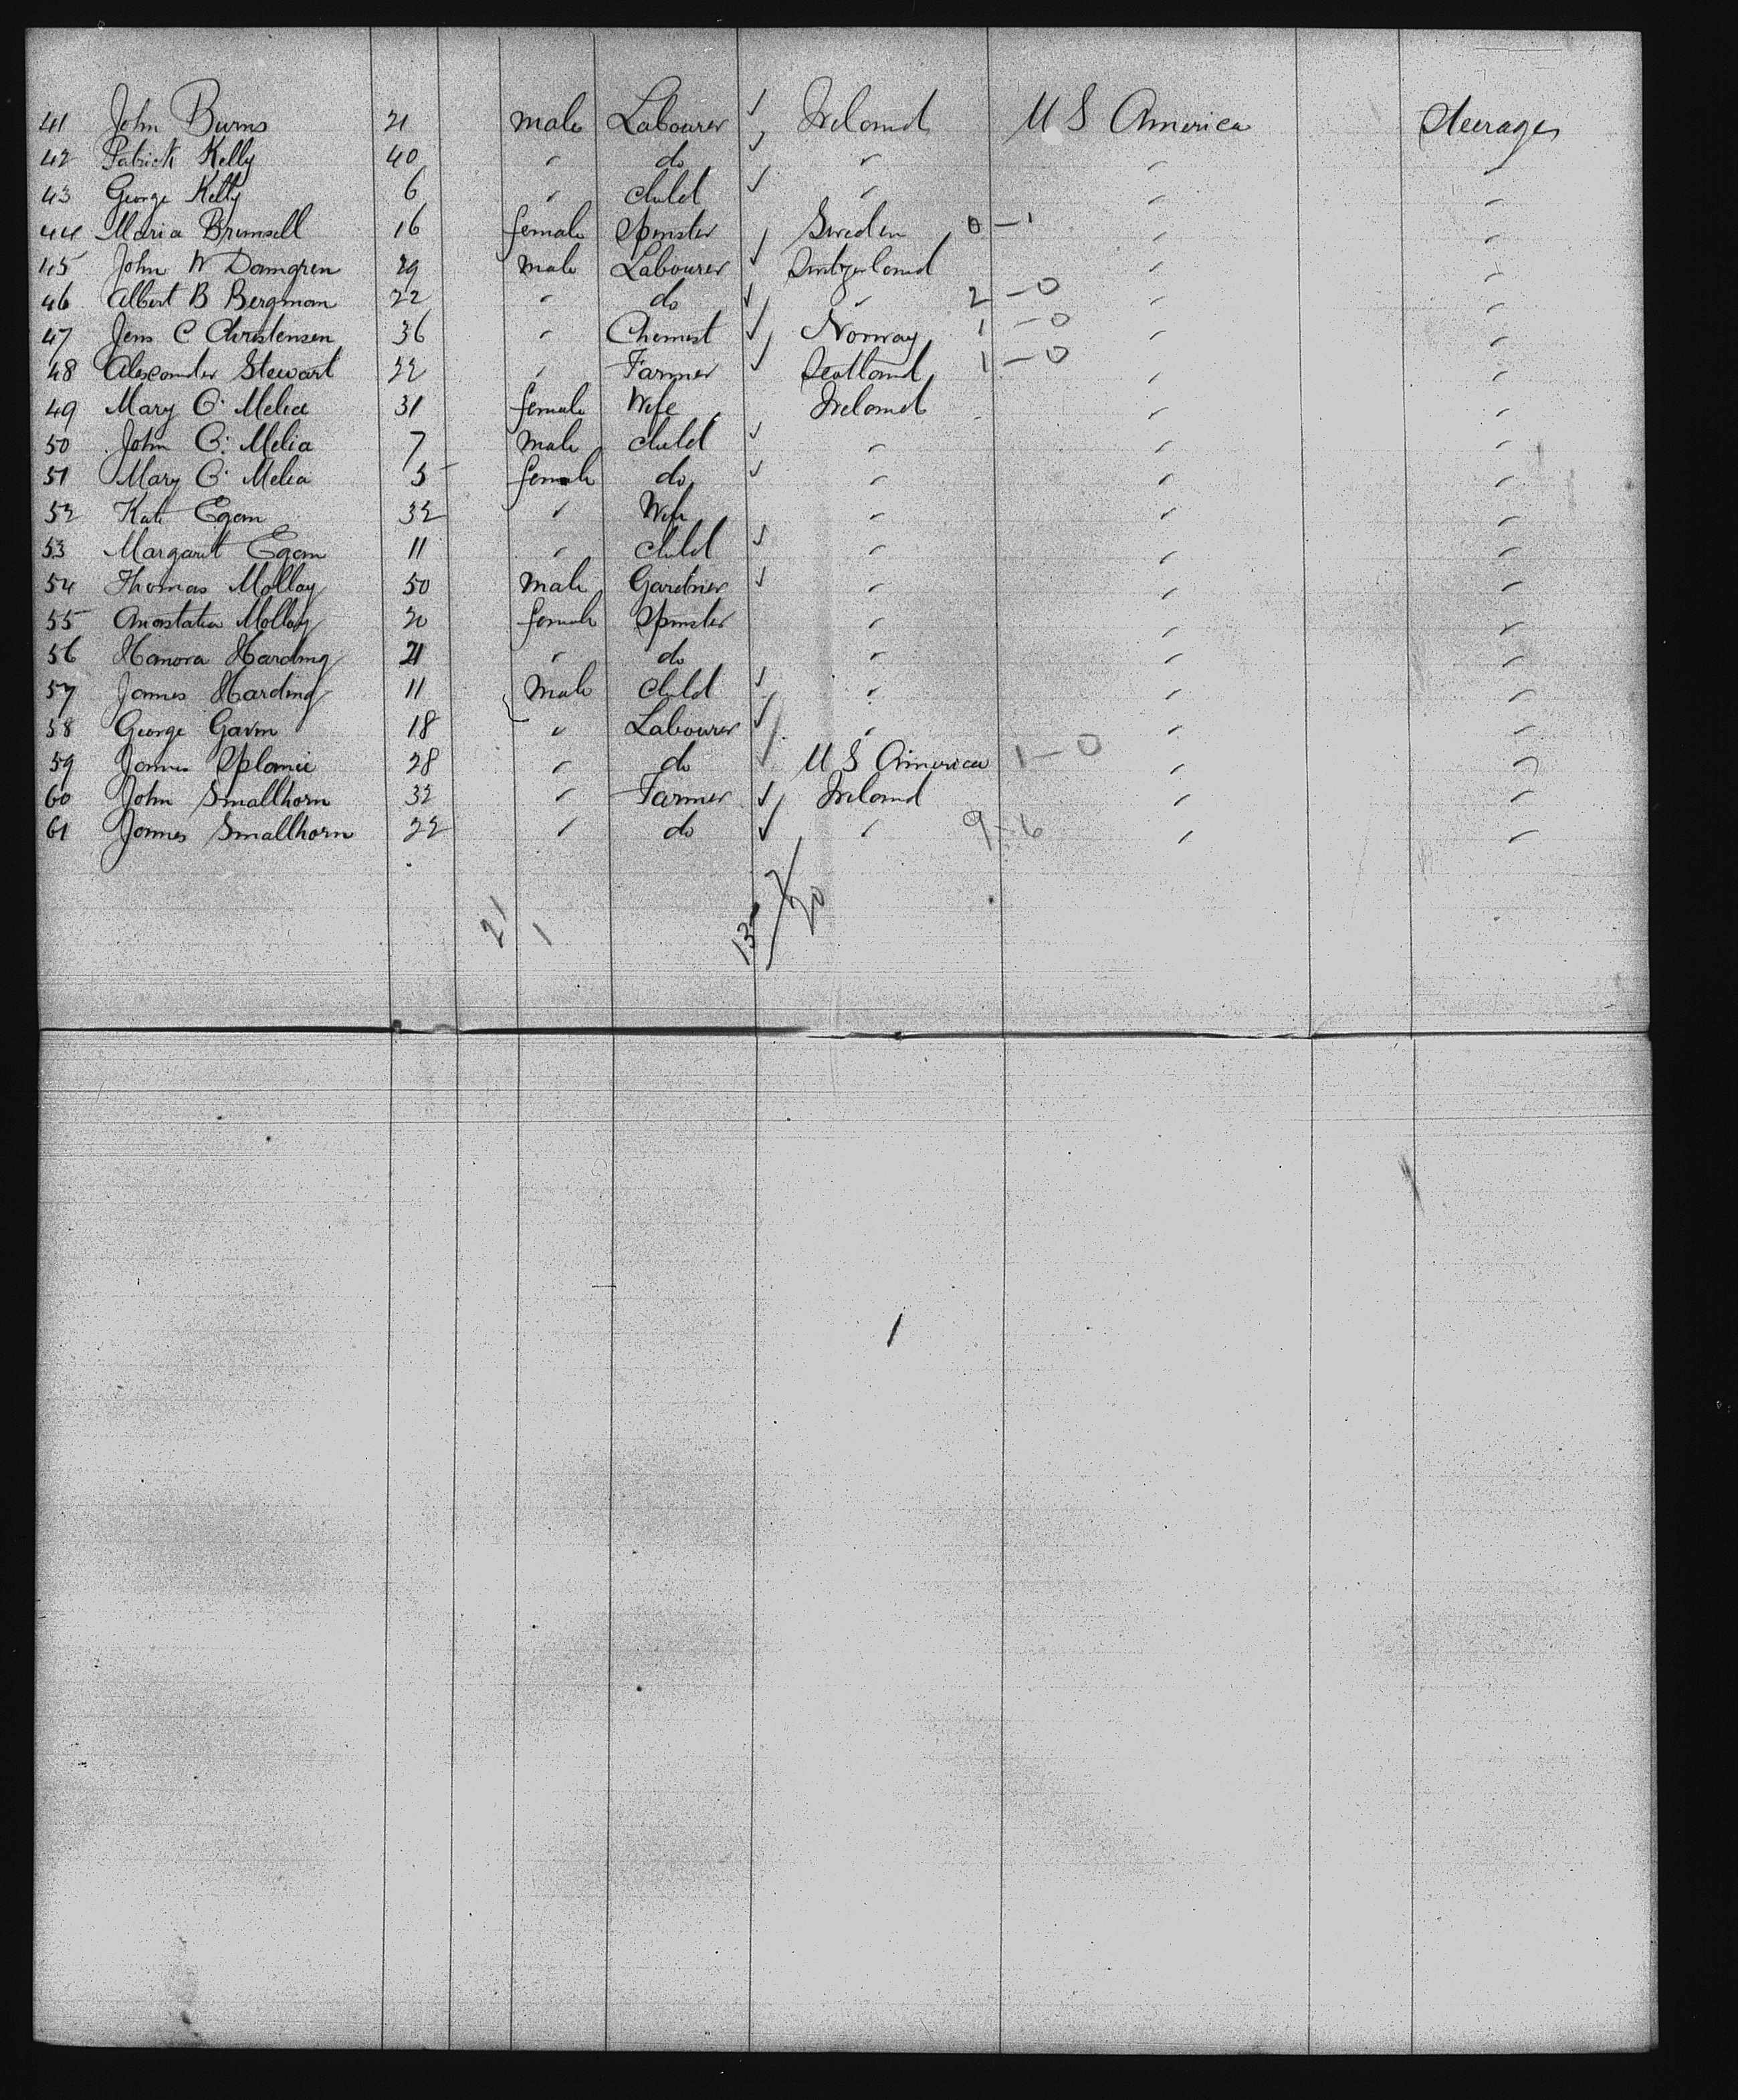 41 John Burns 21 male Labourer ✓ Ireland U S America Steerage
42 Patrick Kelly 40 " do ✓ " " "
43 George Kelly 6 " child ✓ " " "
44 Maria Brunsell 16 female Spinster Sweden 0 - 1 " "
45 John W Damgren 29 male Labourer ✓ Switzerland " "
46 Albert B Bergman 22 " do ✓ " 2 - 0 " "
47 Jens C Christensen 36 " Chemist ✓ Norway 1 - 0 " "
48 Alexander Stewart 22 " Farmer ✓ Scotland 1 - 0 " "
49 Mary O' Melia 31 female Wife Ireland " "
50 John O' Melia 7 male child ✓ " " "
51 Mary O' Melia 5 female do ✓ " " "
52 Kate Egan 32 " Wife " " "
53 Margaret Egan 11 " child ✓ " " "
54 Thomas Molloy 50 male Gardner ✓ " " "
55 Anastatia Molloy 20 female Spinster " " "
56 Hanora Harding 21 " do " " "
57 James Harding 11 male child ✓ " " "
58 George Gavin 18 " Labourer ✓ " " "
59 James 28 " do ✓ U S America 1 - 0 " "
60 John Smallhorn 32 " Farmer ✓ Ireland " "
61 James Smallhorn 22 " do ✓ " 9 - 6 " "
21 1 13 7 20